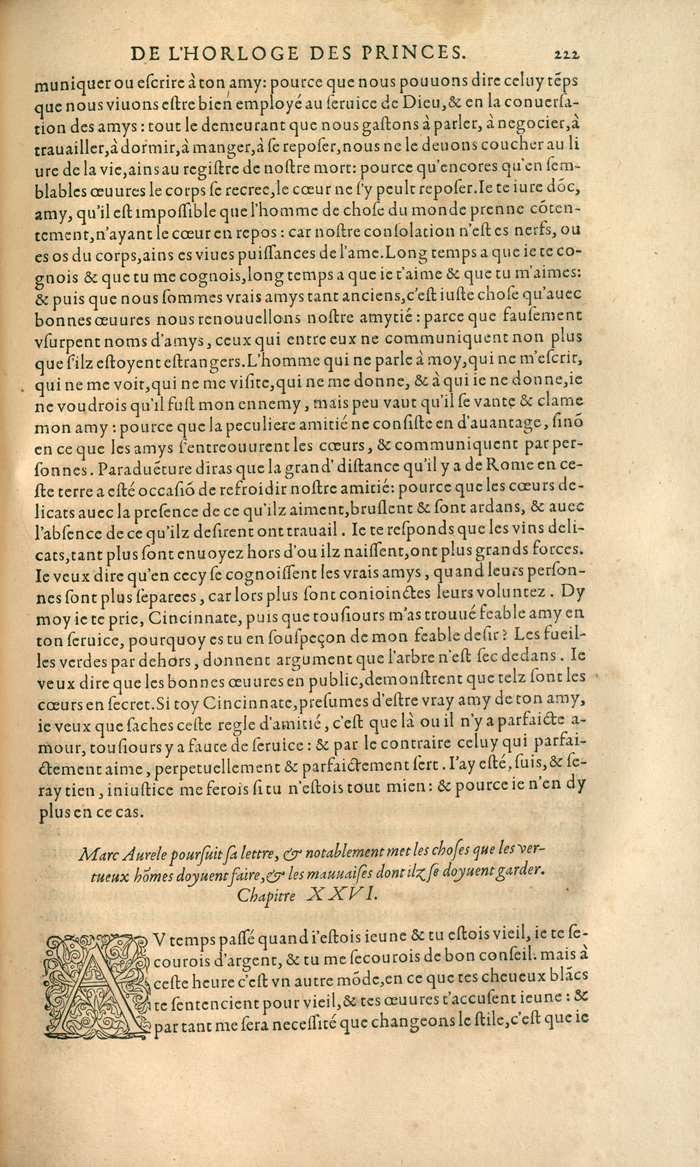 DE L'HORLOGE DES PRINCES. 222
muniquer ou eſcrire à ton amy: pource que nous pouuons dire celuy tẽps
que nous viuons eſtre bien employé au ſeruice de Dieu, & en la conuerſa-
tion des amys : tout le demeurant que nous gaſtons à parler, à negocier, à
trauailler, à dormir, à manger, à ſe repoſer, nous ne le deuons coucher au li
ure de la vie, ains au regiſtre de noſtre mort: pource qu'encores qu'en ſem-
blables œuures le corps ſe recree, le cœur ne ſ'y peult repoſer. Ie te iure dõc,
amy, qu'il eſt impoſſible que l'homme de choſe du monde prenne cõten-
tement, n'ayant le cœur en repos : car noſtre conſolation n'eſt es nerfs, ou
es os du corps, ains es viues puiſſances de l'ame. Long temps a que ie te co-
gnois & que tu me cognois, long temps a que ie t'aime & que tu m'aimes:
& puis que nous ſommes vrais amys tant anciens, c'eſt iuſte choſe qu'auec
bonnes œuures nous renouuellons noſtre amytié : parce que fauſement
vſurpent noms d'amys, ceux qui entre eux ne communiquent non plus
que ſilz eſtoyent eſtrangers. L'homme qui ne parle à moy, qui ne m'eſcrit,
qui ne me voit, qui ne me viſite, qui ne me donne, & à qui ie ne donne, ie
ne voudrois qu'il fuſt mon ennemy, mais peu vaut qu'il ſe vante & clame
mon amy : pource que la peculiere amitié ne conſiſte en d'auantage, ſinõ
en ce que les amys ſ'entreouurent les cœurs, & communiquent par per-
ſonnes. Paraduẽture diras que la grand' diſtance qu'il y a de Rome en ce-
ſte terre a eſté occaſiõ de refroidir noſtre amitié: pource que les cœurs de-
licats auec la preſence de ce qu'ilz aiment, bruſlent & ſont ardans, & auec
l'abſence de ce qu'ilz deſirent ont trauail. Ie te reſponds que les vins deli-
cats, tant plus ſont enuoyez hors d'ou ilz naiſſent, ont plus grands forces.
Ie veux dire qu'en cecy ſe cognoiſſent les vrais amys, quand leurs perſon-
nes ſont plus ſeparees, car lors plus ſont conioinctes leurs voluntez. Dy
moy ie te prie, Cincinnate, puis que touſiours m'as trouué feable amy en
ton ſeruice, pourquoy es tu en ſouſpeçon de mon feable deſir? Les fueil-
les verdes par dehors, donnent argument que l'arbre n'eſt ſec dedans. Ie
veux dire que les bonnes œuures en public, demonſtrent que telz ſont les
cœurs en ſecret. Si toy Cincinnate, preſumes d'eſtre vray amy de ton amy,
ie veux que ſaches ceſte regle d'amitié, c'eſt que là ou il n'y a parfaicte a-
mour, touſiours y a faute de ſeruice : & par le contraire celuy qui parfai-
ctement aime, perpetuellement & parfaictement ſert. I'ay eſté, ſuis, & ſe-
ray tien, iniuſtice me ferois ſi tu n'eſtois tout mien: & pource ie n'en dy
plus en ce cas.
Marc Aurele pourſuit ſa lettre, & notablement met les choſes que les ver-
tueux hõmes doyuent faire, & les mauuaiſes dont ilz ſe doyuent garder.
Chapitre XXVI.
AV temps paſſé quand i'eſtois ieune & tu eſtois vieil, ie te ſe-
courois d'argent, & tu me ſecourois de bon conſeil. mais à
ceſte heure c'eſt vn autre mõde, en ce que tes cheueux blãcs
te ſentencient pour vieil, & tes œuures t'accuſent ieune : &
par tant me ſera neceſſité que changeons le ſtile, c'eſt que ie